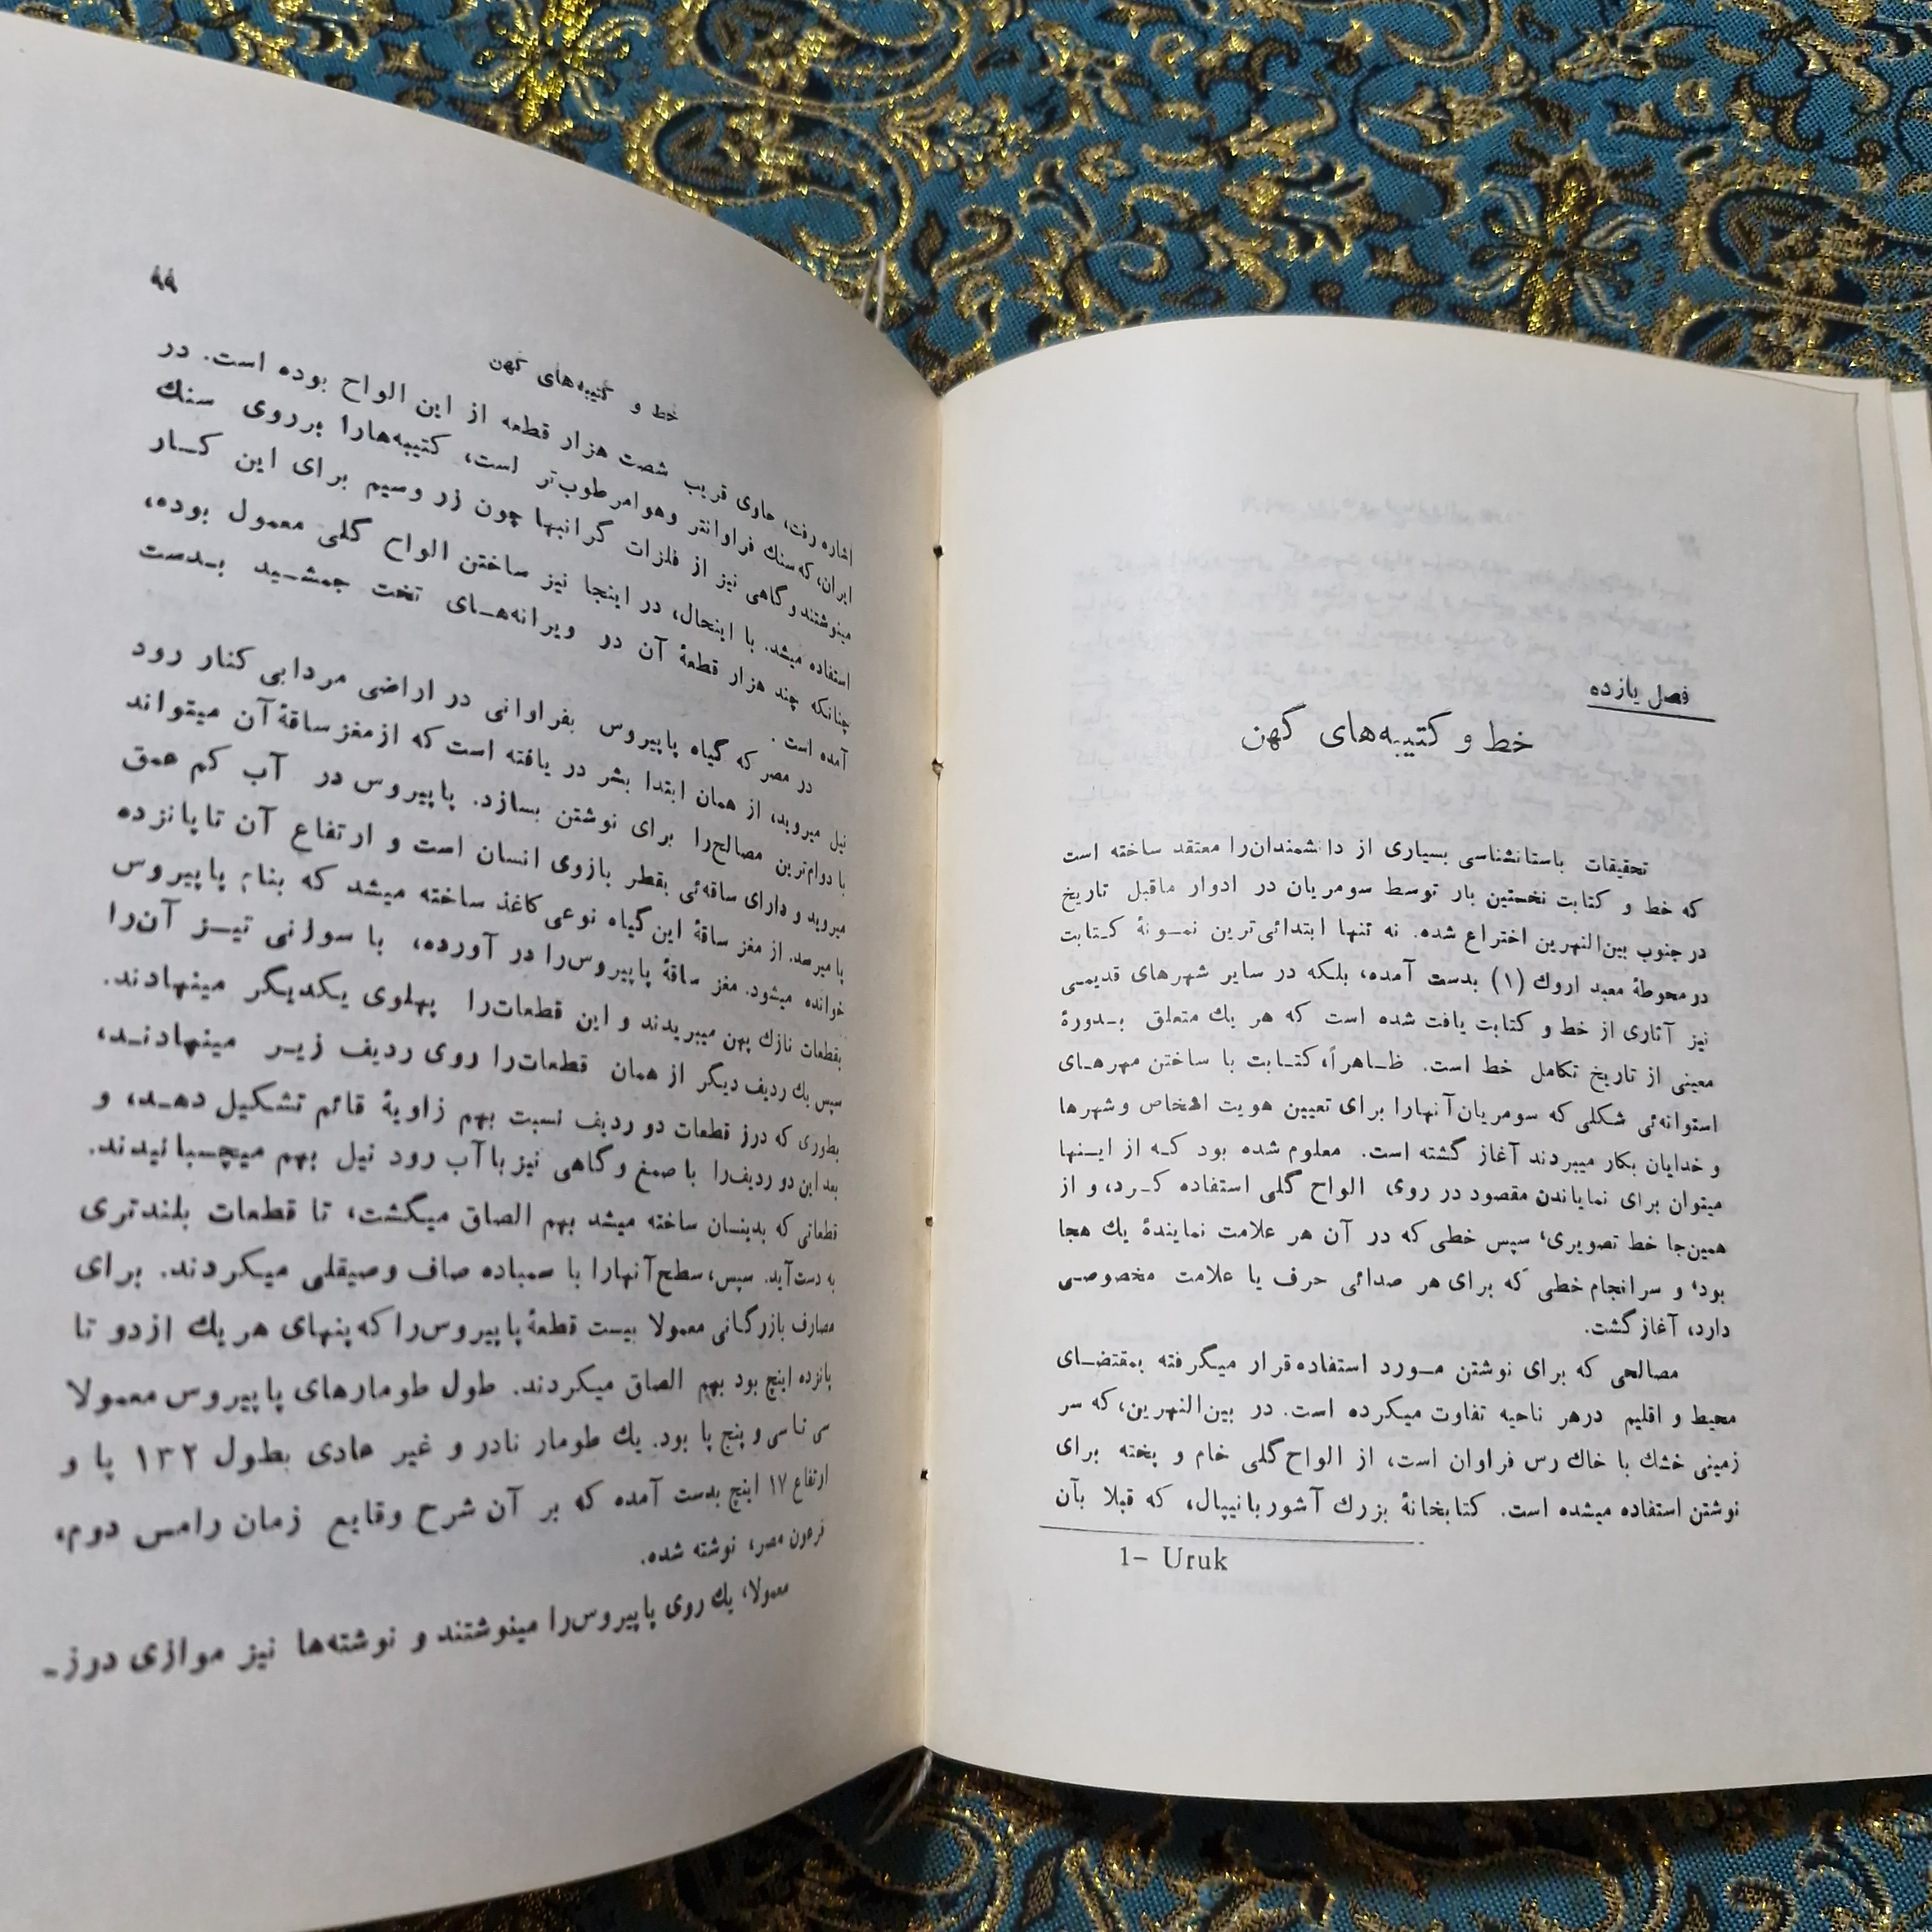 فصل یازده
خط و کتیبه‌های کهن
تحقیقات باستانشناسی بسیاری از دانشمندان‌را معتقد ساخته است
که خط و کتابت نخستین بار توسط سومریان در ادوار ماقبل تاریخ
در جنوب بین‌النهرین اختراع شده. نه تنها ابتدائی‌ترین نمـونهٔ کـتابت
در محوطهٔ معبد اروك (۱) بدست آمده، بلکه در سایر شهرهای قدیمـی
نیز آثاری از خط و کتابت یافت شده است که هر یك متعلق بـدورهٔ
معینی از تاریخ تکامل خط است. ظـاهراً، کتـابت با ساختن مهرهـای
استوانه‌ئی شکلی که سومریان آنهارا برای تعیین هویت اشخاص و شهرها
و خدایان بکار میبردند آغاز گشته است. معلوم شده بود کـه از ایـنها
میتوان برای نمایاندن مقصود در روی، الواح گلی استفاده کـرد، و از
همین‌جا خط تصویری، سپس خطی که در آن هر علامت نمایندهٔ یك هجا
بود، و سرانجام خطی که برای هر صدائی حرف یا علامت مخصوصـی
دارد، آغاز گشت.
مصالحی که برای نوشتن مـورد استفاده قرار میگرفته بمقتضـای
محیط و اقلیم درهر ناحیه تفاوت میکرده است. در بین‌النهرین، که سر
زمینی خشك با خاك رس فراوان است، از الواح گلی خام و پخته برای
نوشتن استفاده میشده است. کتابخانهٔ بزرك آشوربانیپال، که قبلا بآن
1– Uruk
۹۹
خط و کتیبه‌های کهن
اشاره رفت، حاوی قریب شصت هزار قطعه از این الواح بوده است. در
ایران، که سنك فراوانتر وهوا مرطوب‌تر است، کتیبه‌هارا برروی سنك
مینوشتند و گاهی نیز از فلزات گرانبها چون زر وسیم برای این کـار
استفاده میشد. با اینحال، در اینجا نیز ساختن الواح گلی معمول بوده،
چنانکه چند هزار قطعهٔ آن در ویرانه‌هـای تخت جمشـید بـدست
آمده است.
در مصر که گیاه پاپیروس بفراوانی در اراضی مردابی کنار رود
نیل میروید، از همان ابتدا بشر در یافته است که ازمغز ساقهٔ آن میتواند
با دوام‌ترین مصالح‌را برای نوشتن بسازد. پاپیروس در آب کم عمق
میروید و دارای ساقه‌ئی بقطر بازوی انسان است و ارتفاع آن تا پانزده
پا میرسد. از مغز ساقهٔ این گیاه نوعی کاغذ ساخته میشد که بنام پاپیروس
خوانده میشود. مغز ساقهٔ پاپیروس‌را در آورده، با سوزنی تیـز آن‌را
بقطعات نازك پهن میبریدند و این قطعات‌را پهلوی یکدیگر مینهادند.
سپس یك ردیف دیگر از همان قطعات‌را روی ردیف زیـر مینهادنـد،
بطوری که درز قطعات دو ردیف نسبت بهم زاویهٔ قائم تشکیل دهـد، و
بعد این دو ردیف‌را با صمغ و گاهی نیز با آب رود نیل بهم میچسبانیدند.
قطعاتی که بدینسان ساخته میشد بهم الصاق میگشت، تا قطعات بلندتری
به دست آید. سپس، سطح آنهارا با سمباده صاف وصیقلی میکردند. برای
مصارف بازرگانی معمولا بیست قطعهٔ پاپیروس‌را که پنهای هر یك ازدو تا
پانزده اینچ بود بهم الصاق میکردند. طول طومارهای پاپیروس معمولا
سی تا سی و پنج پا بود. یك طومار نادر و غیر عادی بطول ۱۳۲ پا و
ارتفاع ۱۷ اینچ بدست آمده که بر آن شرح وقایع زمان رامس دوم،
فرعون مصر، نوشته شده.
معمولا، یك روی پاپیروس‌را مینوشتند و نوشته‌ها نیز موازی درزـ